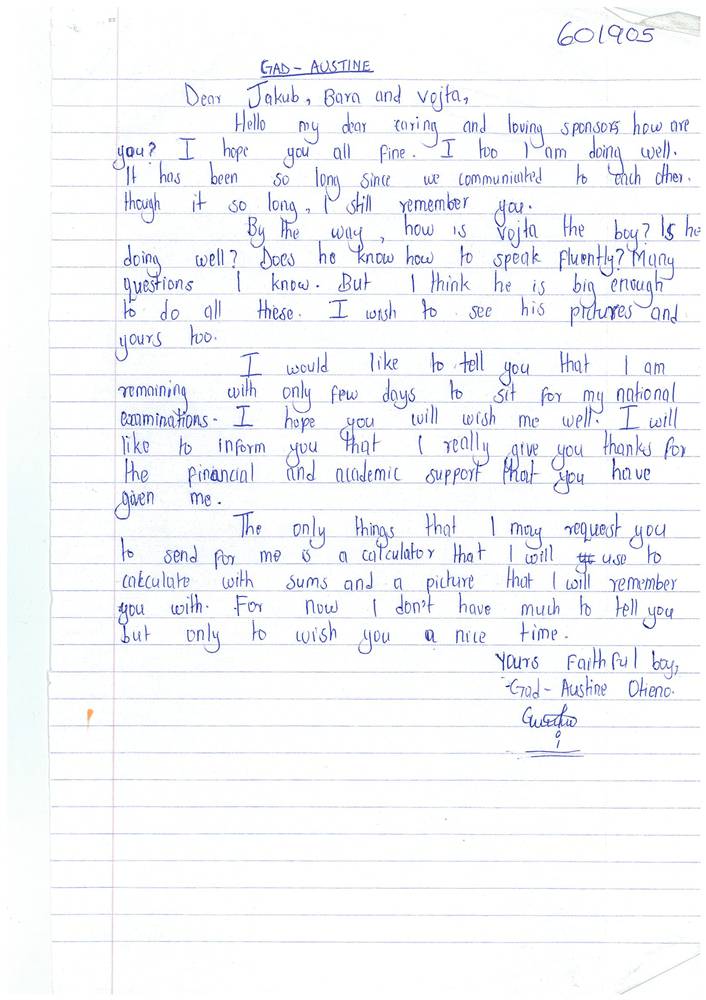 601905
GAD - AUSTINE
Dear Jakub, Bara and Vojta,
Hello my dear caring and loving sponsors how are
you? I hope you all fine. I too I am doing well.
It has been so long since we communicated to each other.
though it so long, I still remember you.
By the way, how is Vojta the boy? Is he
doing well? Does he know how to speak fluently? Many
questions I know. But I think he is big enough
to do all these. I wish to see his pictures and
yours too.
I would like to tell you that I am
remaining with only few days to sit for my national
examinations. I hope you will wish me well. I will
like to inform you that I really give you thanks for
the financial and academic support that you have
given me.
The only things that I may request you
to send for me is a calculator that I will use to
calculate with sums and a picture that I will remember
you with. For now I don't have much to tell you
but only to wish you a nice time.
Yours Faithful boy,
Gad - Austine Otieno.